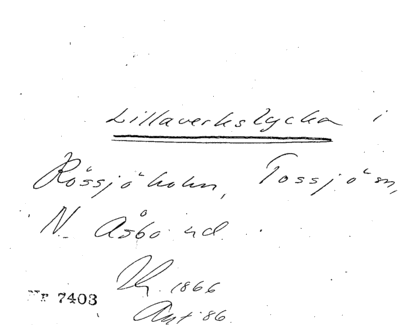 Lillaverkslycka i
Rössjöholm, Tossjö sn,
N. Åsbo hd.
1866
Nr 7403
Ant 86.